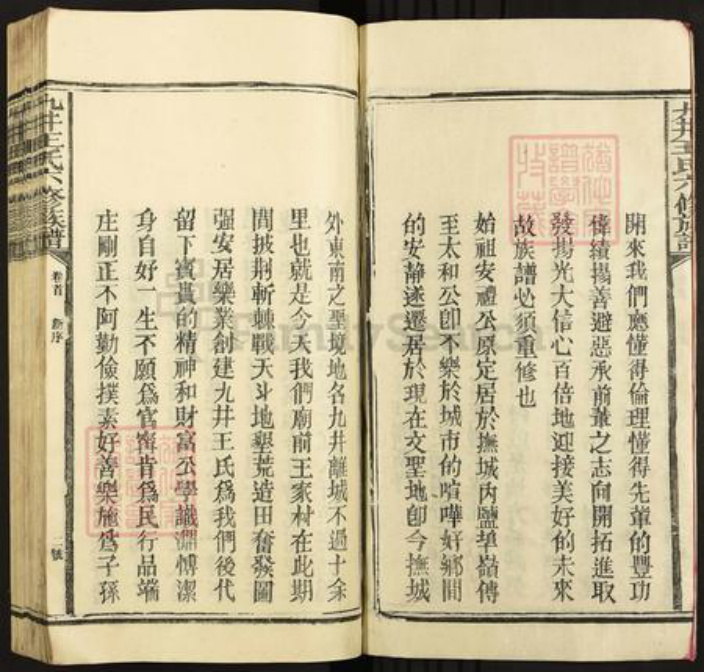 九井王氏六修族譜
開來我們應懂得倫理懂得先輩的豐功
偉績揚善避惡承前輩之志向開拓進取
發揚光大信心百倍地迎接美好的未來
故族譜必須重修也
始祖安禮公原定居於撫城內鹽埠嶺傳
至太和公卽不樂於城市的喧嘩好鄉間
的安靜遂遷居於現在文聖地卽今撫城
外東南之聖境地名九井離城不過十余
里也就是今天我們廟前王家村在此期
間披荆斬棘戰天斗地墾荒造田奮發圖
强安居樂業創建九井王氏爲我們後代
留下寶貴的精神和財富公學識淵博潔
身自好一生不願爲官甯肯爲民行品端
庄剛正不阿勤儉撲素好善樂施爲子孫
九井王氏六修族譜
卷首
新序
二號
FamilySearch